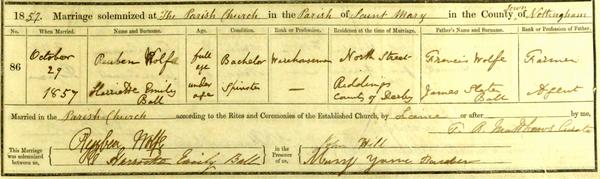 1857. Marriage solemnized at The Parish Church in the Parish of Saint Mary in the County Town of Nottingham
No. When Married. Name and Surname. Age. Condition. Rank or Profession. Residence at the time of Marriage. Father's Name and Surname. Rank or Profession of Father.
86 October 29 1857
Reuben Wolfe full age Bachelor Warehouseman North Street Francis Wolfe Farmer
Harriette Emily Ball under age Spinster — Riddings County of Derby James Ball Agent
Married in the Parish Church according to the Rites and Ceremonies of the Established Church, by Licence or after by me,
T. R. Matthews Curate
This Marriage was solemnized between us, Reuben Wolfe Harriette Emily Ball
in the Presence of us, John Hill Mary